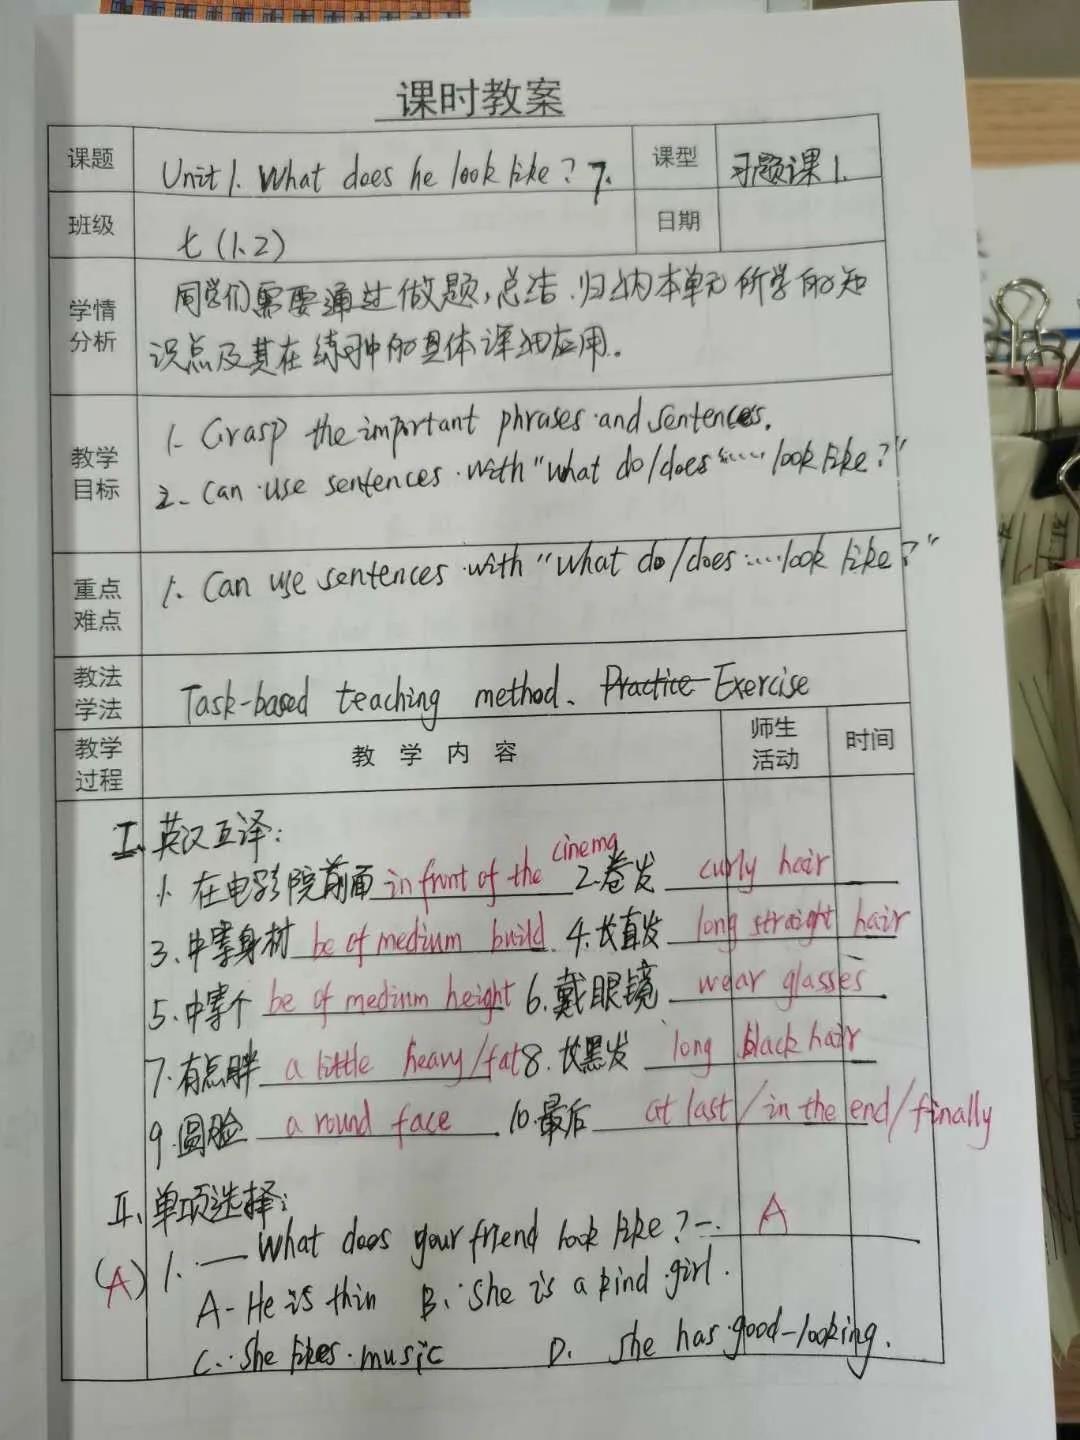 课时教案
课题 Unit 1. What does he look like? 7. 课型 习题课 1.
班级 七 (1.2) 日期
学情分析 同学们需要通过做题,总结.归纳本单元所学的知
识点及其在练习中的具体详细应用。
教学目标 1. Grasp the important phrases and sentences.
2. Can use sentences with "What do/does ...... look like?"
重点难点 1. Can use sentences with "What do/does ..... look like?"
教法学法 Task-based teaching method、 Practice Exercise
教学过程 教学内容 师生活动 时间
I、英汉互译:
1. 在电影院前面 in front of the cinema 2. 卷发 curly hair
3. 中等身材 be of medium build. 4. 长直发 long straight hair
5. 中等个 be of medium height 6. 戴眼镜 wear glasses
7. 有点胖 a little heavy/fat 8. 长黑发 long black hair
9. 圆脸 a round face 10. 最后 at last/in the end/finally
II、单项选择:
(A) 1. — What does your friend look like? —. A
A- He is thin B. She is a kind girl.
C. She likes music D. She has good-looking.